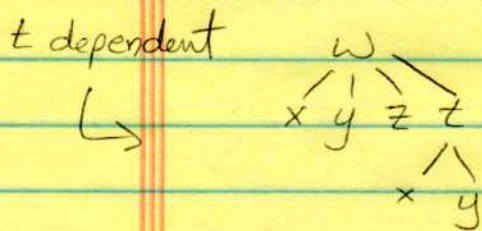 t dependent
w
x y z t
x y